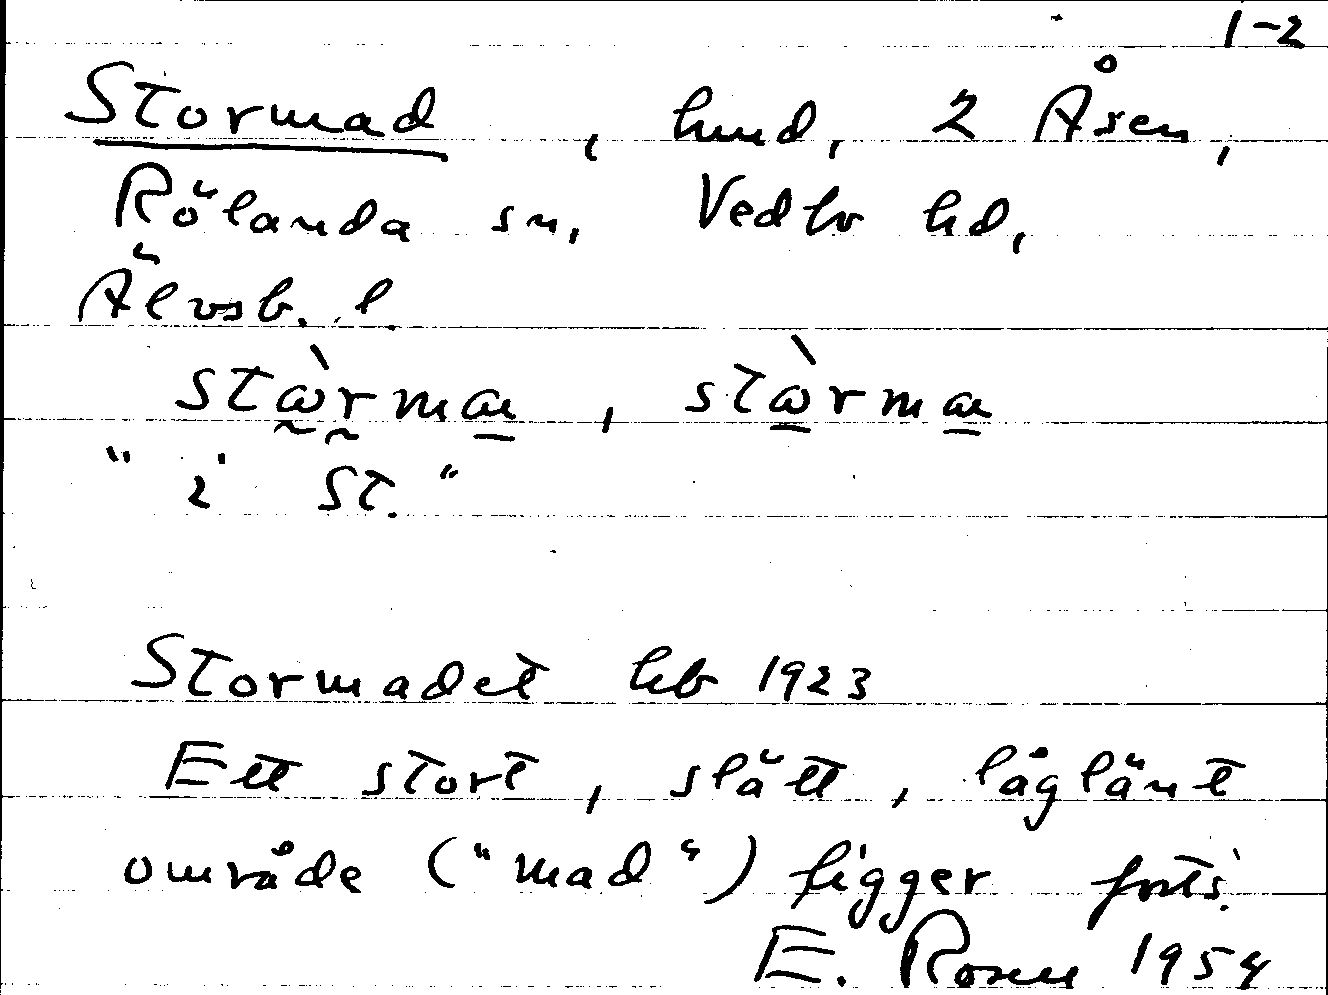 1-2
Stormad, hmd, 2 Åsen,
Rölanda sn, Vedbo hd,
Älvsb. l.
stɷ̀rmaɩ, stɷ̀rmaɩ
"i St."
Stormadet hb 1923
Ett stort, slätt, låglänt
område ("mad") ligger forts.
E. Rosell 1954